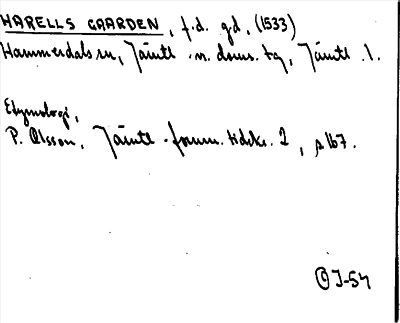 HARELLS GAARDEN, f.d. gd, (1533)
Hammerdals sn, Jämtl. n. doms. tg, Jämtl. l.
Etymologi,
P. Olsson, Jämtl. fornm. tidskr. 2, s 167.
OJ-54